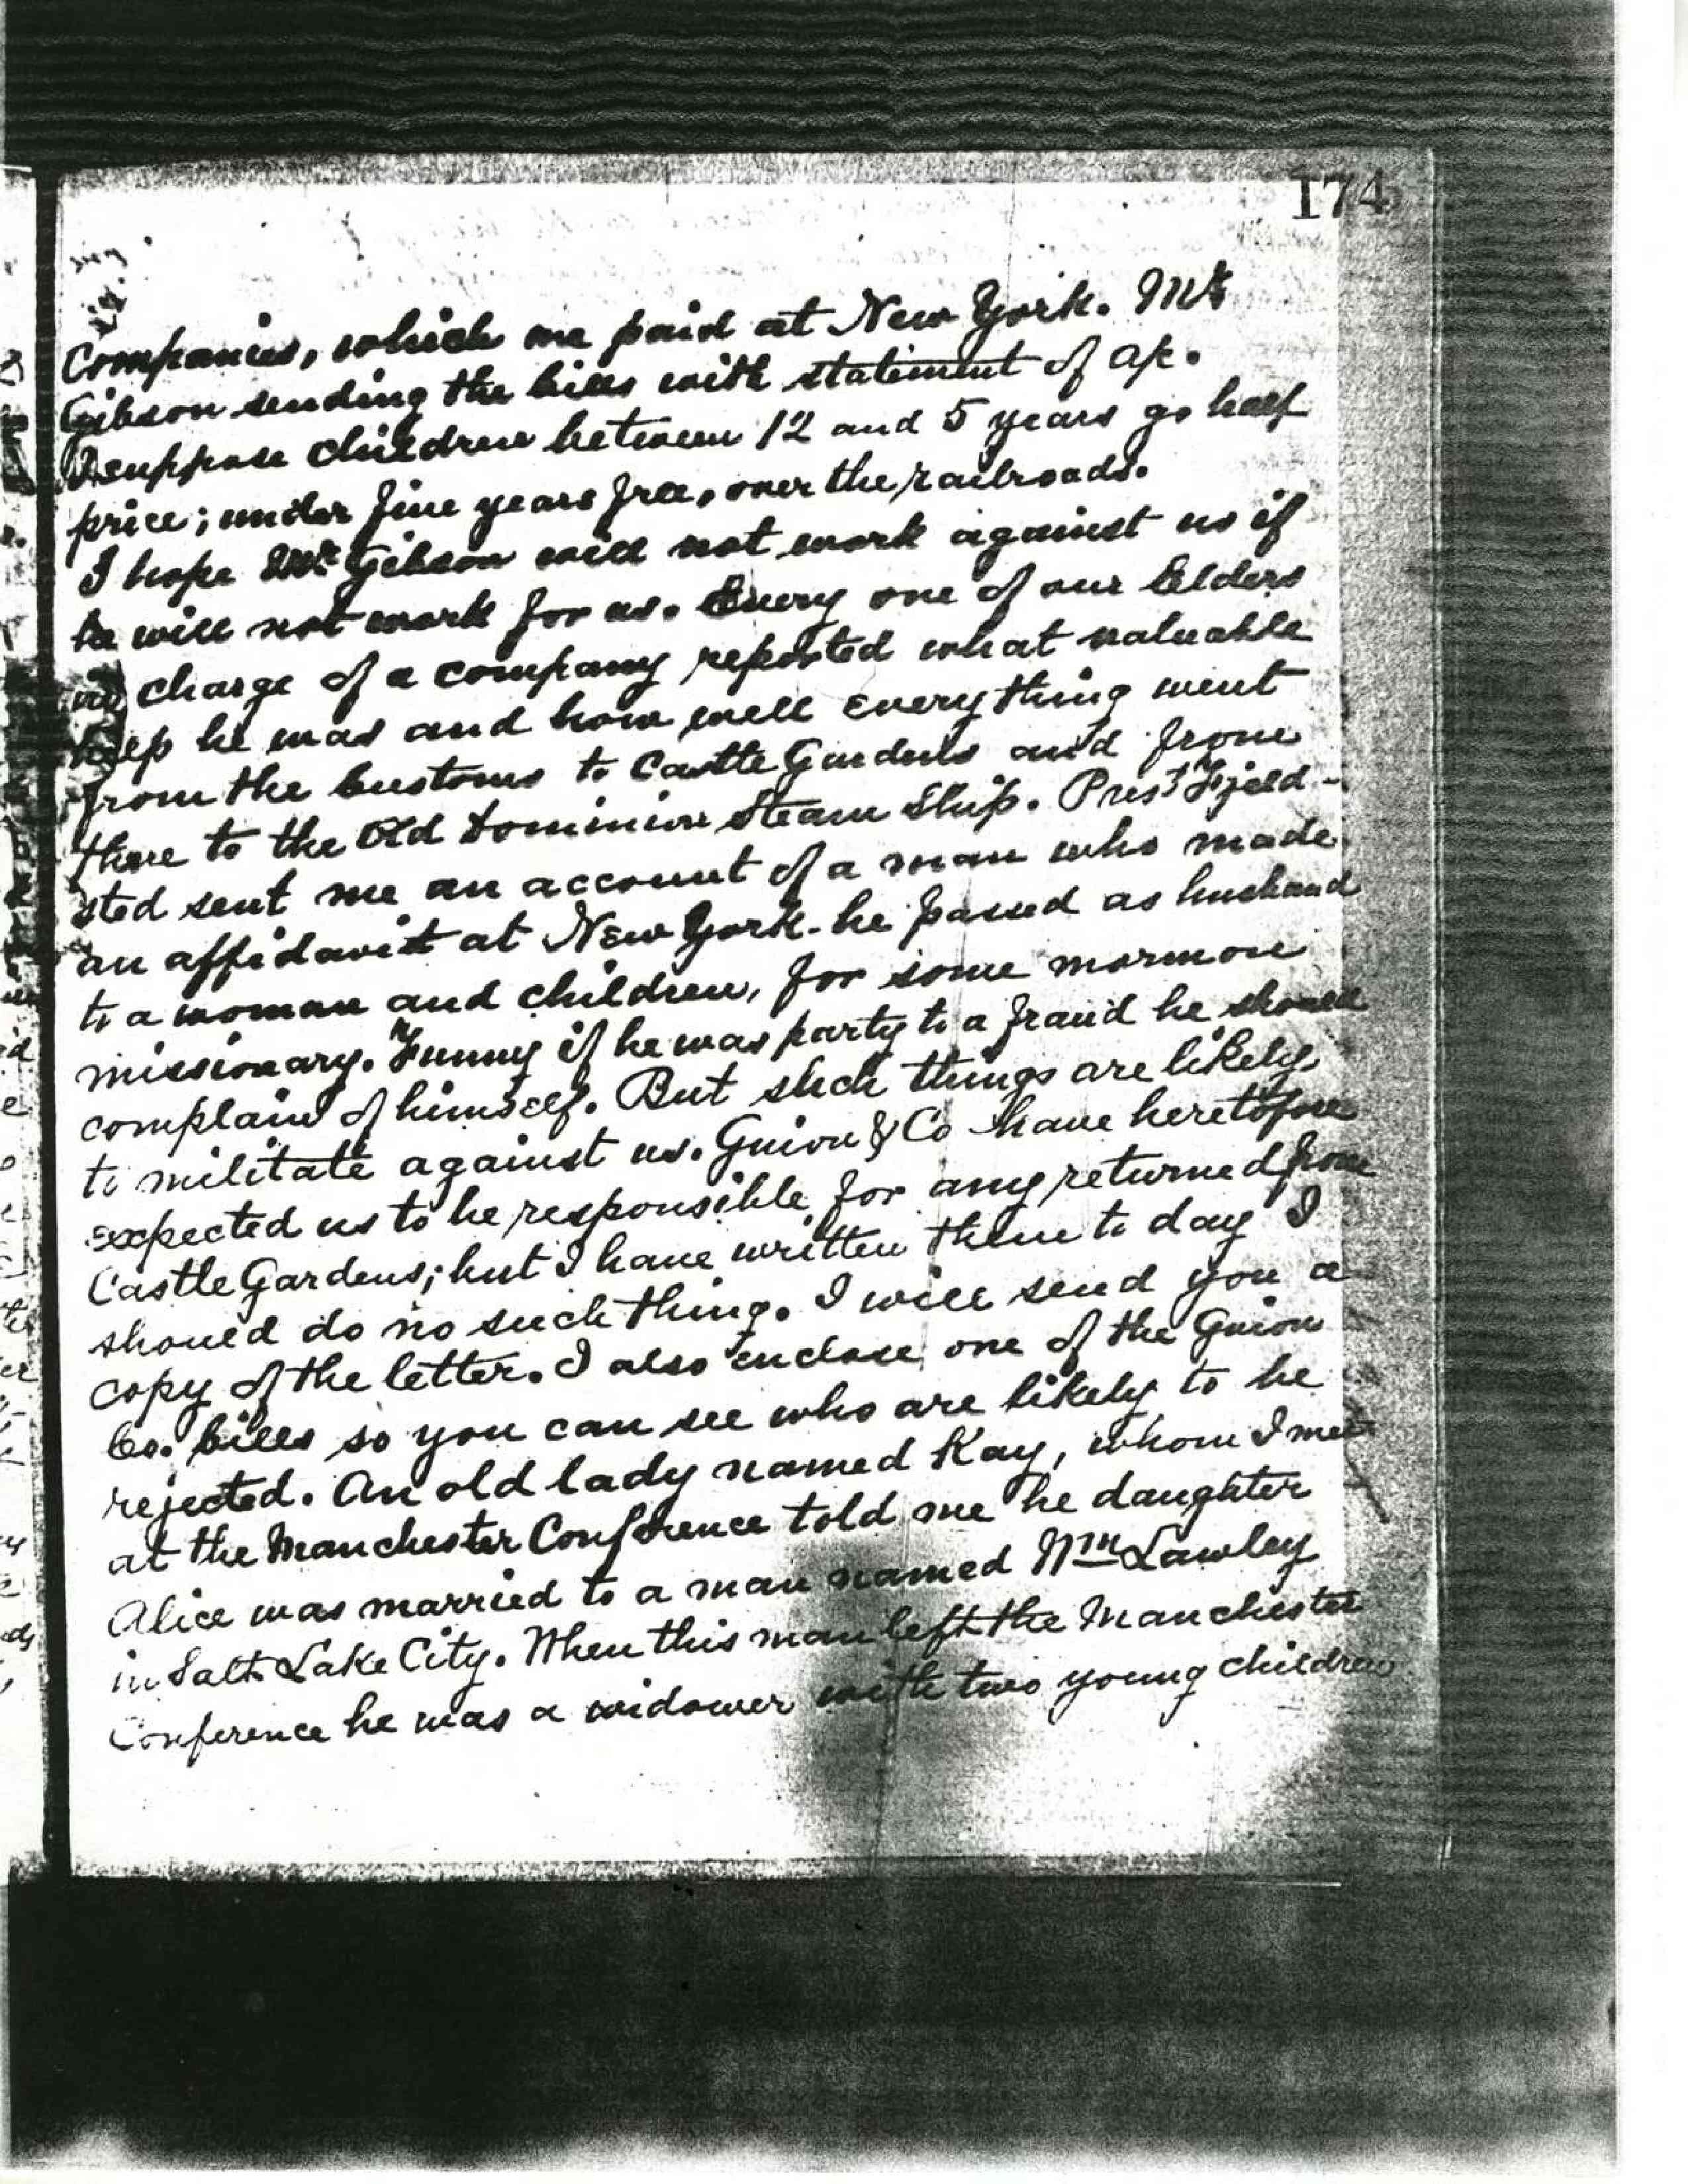 174
Companies, which we paid at New York. Mr
Gibson sending the bills with statement of a/c.
I suppose children between 12 and 5 years go half
price; under five years free, over the railroads.
I hope Mr. Gibson will not work against us if
he will not work for us. Every one of our Elders
in charge of a company reported what valuable
help he was and how well everything went
from the Customs to Castle Gardens and from
there to the Old Dominion Steam Ship. Prest Fjeld-
sted sent me an account of a man who made
an affidavit at New York - he passed as husband
to a woman and children, for some mormon
missionary. Funny if he was party to a fraud he should
complain of himself. But such things are likely
to militate against us. Guion & Co have heretofore
expected us to be responsible for any returned from
Castle Gardens; but I have written them to day I
should do no such thing. I will send you a
copy of the letter. I also enclose one of the Guion
Co. bills so you can see who are likely to be
rejected. An old lady named Kay, whom I met
at the Manchester Conference told me he daughter
Alice was married to a man named Wm Lawley
in Salt Lake City. When this man left the Manchester
Conference he was a widower with two young children